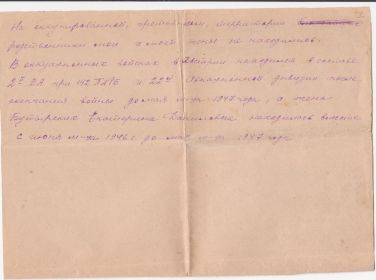 На оккупированной, противником, территории
родственники мои и моей жены не находились.
В оккупационных войсках в Австрии находился в составе
2й ВА при 142 и 224 Авиационной дивизии после
окончания войны до мая м-ца 1947 года, а жена
Бутырских Екатерина Даниловна находилась вместе
с июня м-ца 1946 г. до мая м-ца 1947 года